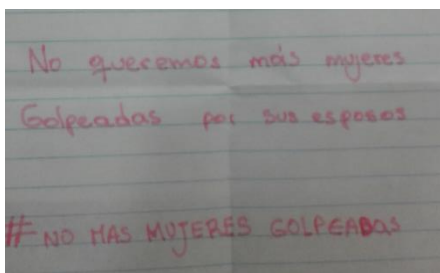 No queremos más mujeres
Golpeadas por sus esposos
# NO MAS MUJERES GOLPEADAS